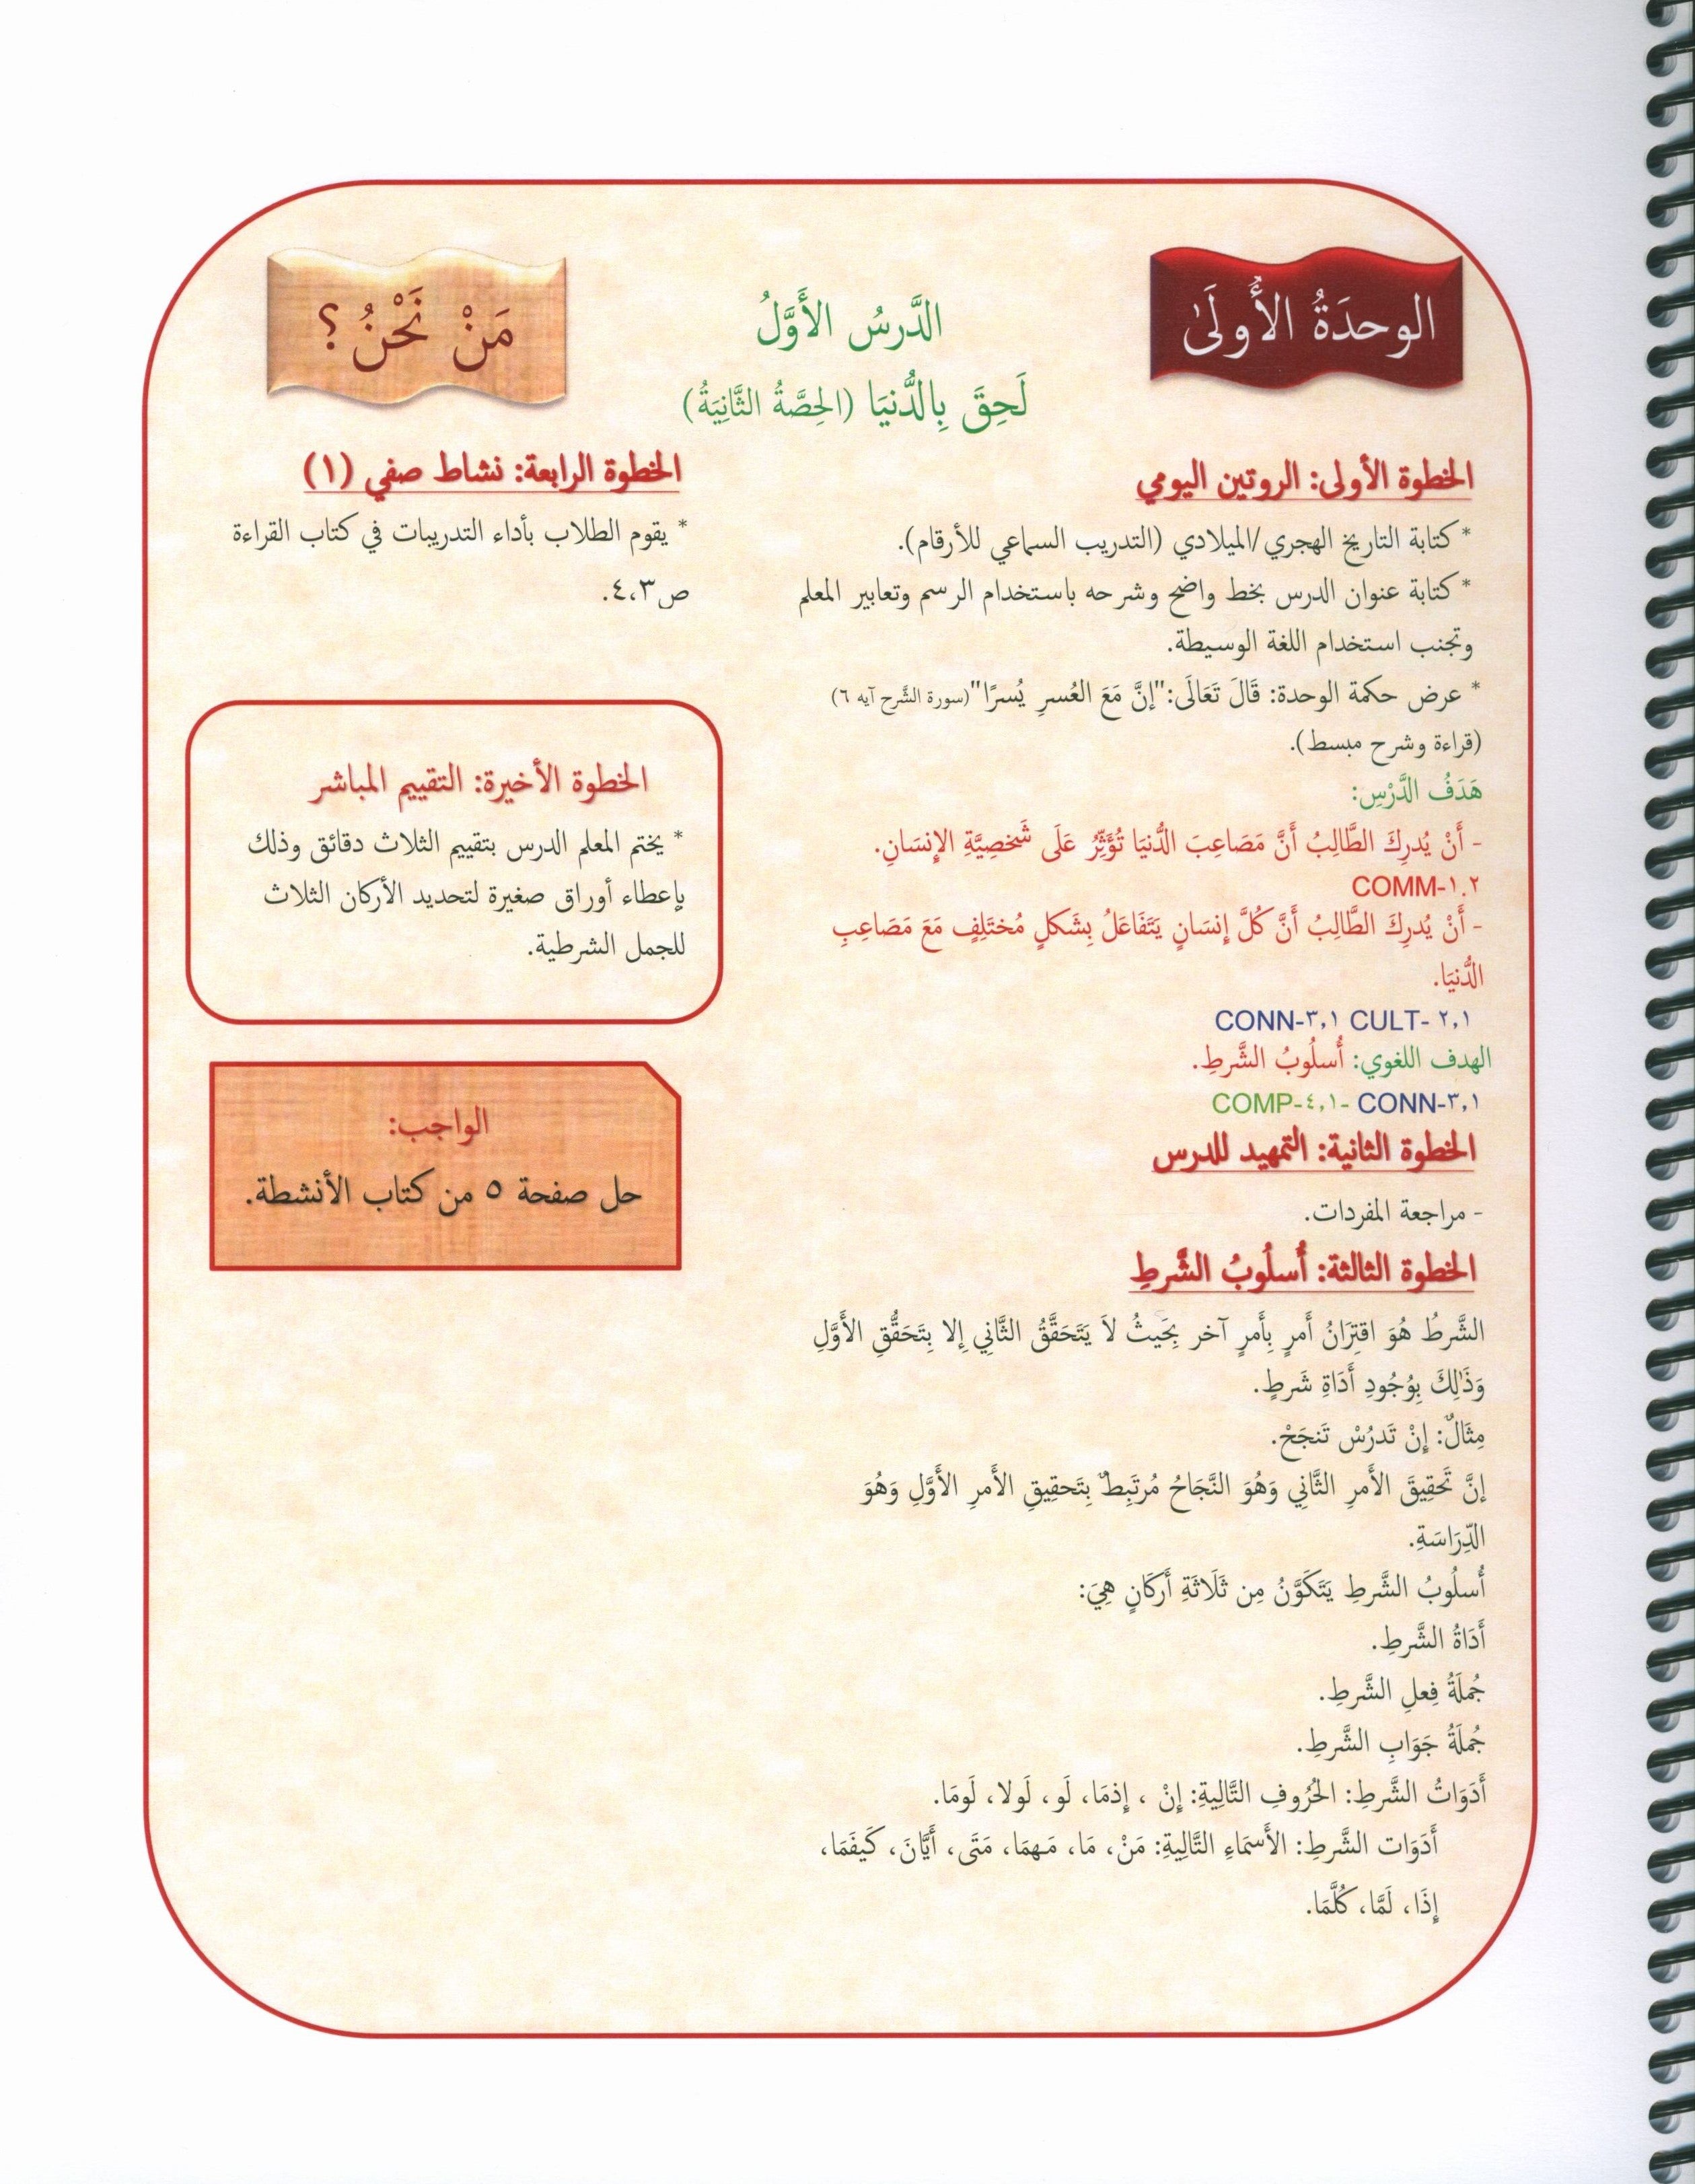 الوحدَةُ الأُولَىٰ
الدَّرسُ الأَوَّلُ
لَحِقَ بِالدُّنيَا (الحِصَّةُ الثَّانِيَةُ)
مَنْ نَحْنُ؟
الخطوة الأولى: الروتين اليومي
* كتابة التاريخ الهجري/الميلادي (التدريب السماعي للأرقام).
* كتابة عنوان الدرس بخط واضح وشرحه باستخدام الرسم وتعابير المعلم
وتجنب استخدام اللغة الوسيطة.
* عرض حكمة الوحدة: قَالَ تَعَالَى:"إنَّ مَعَ العُسرِ يُسرًا"(سورة الشَّرح آيه ٦)
(قراءة وشرح مبسط).
هَدَفُ الدَّرْسِ:
- أَنْ يُدرِكَ الطَّالِبُ أَنَّ مَصَاعِبَ الدُّنيَا تُؤَثِّرُ عَلَى شَخصِيَّةِ الإِنسَانِ.
COMM-١.٢
- أَنْ يُدرِكَ الطَّالِبُ أَنَّ كُلَّ إِنسَانٍ يَتَفَاعَلُ بِشَكلٍ مُختَلِفٍ مَعَ مَصَاعِبِ
الدُّنيَا.
CONN-٣,١ CULT- ٢,١
الهدف اللغوي: أُسلُوبُ الشَّرطِ.
COMP-٤,١- CONN-٣,١
الخطوة الثانية: التمهيد للدرس
- مراجعة المفردات.
الخطوة الثالثة: أُسلُوبُ الشَّرطِ
الشَّرطُ هُوَ اقتِرَانُ أَمرٍ بِأَمرٍ آخر بِحَيثُ لاَ يَتَحَقَّقُ الثَّانِي إِلا بِتَحَقُّقِ الأَوَّلِ
وَذَٰلِكَ بِوُجُودِ أَدَاةِ شَرطٍ.
مِثَالٌ: إِنْ تَدرُسْ تَنجَحْ.
إنَّ تَحقِيقَ الأَمرِ الثَّانِي وَهُوَ النَّجَاحُ مُرتَبِطٌ بِتَحقِيقِ الأَمرِ الأَوَّلِ وَهُوَ
الدِّرَاسَةِ.
أُسلُوبُ الشَّرطِ يَتَكَوَّنُ مِن ثَلَاثَةِ أَركَانٍ هِيَ:
أَدَاةُ الشَّرطِ.
جُملَةُ فِعلِ الشَّرطِ.
جُملَةُ جَوَابِ الشَّرطِ.
أَدَوَاتُ الشَّرطِ: الحُرُوفِ التَّالِيةِ: إِنْ ، إِذمَا، لَو، لَولا، لَومَا.
أَدَوَات الشَّرطِ: الأَسمَاءِ التَّالِيةِ: مَنْ، مَا، مَهمَا، مَتَى، أَيَّانَ، كَيفَمَا،
إِذَا، لَمَّا، كُلَّمَا.
الخطوة الرابعة: نشاط صفي (١)
* يقوم الطلاب بأداء التدريبات في كتاب القراءة
ص٤،٣.
الخطوة الأخيرة: التقييم المباشر
* يختم المعلم الدرس بتقييم الثلاث دقائق وذلك
بإعطاء أوراق صغيرة لتحديد الأركان الثلاث
للجمل الشرطية.
الواجب:
حل صفحة ٥ من كتاب الأنشطة.